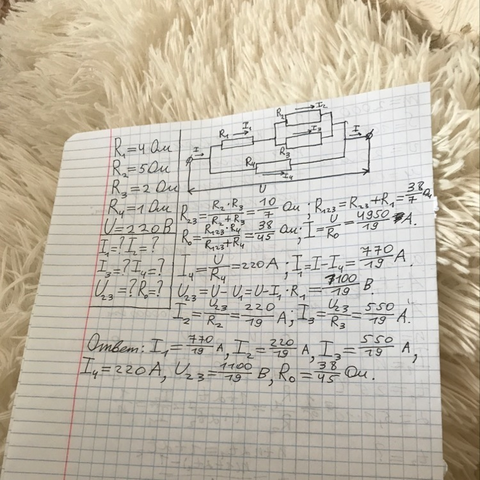 R₁=4 Ом
R₂=5 Ом
R₃=2 Ом
R₄=1 Ом
U=220 В
I=? I₂=?
I₃=? I₄=?
U₂₃=? R₀=?
I R₁ I₁ R₂ I₂ I₃ R₃ R₄ I₄ I
U
R₂₃=R₂·R₃/R₂+R₃=10/7 Ом; R₁₂₃=R₂₃+R₁=38/7 Ом
R₀=R₁₂₃·R₄/R₁₂₃+R₄=38/45 Ом; I=U/R₀=4950/19 A.
I₄=U/R₄=220A; I₁=I-I₄=770/19 A.
U₂₃=U-U₁=U-I₁·R₁=1100/19 В
I₂=U₂₃/R₂=220/19 A, I₃=U₂₃/R₃=550/19 A.
Ответ: I₁=770/19 A, I₂=220/19 A, I₃=550/19 A,
I₄=220 A, U₂₃=1100/19 В, R₀=38/45 Ом.